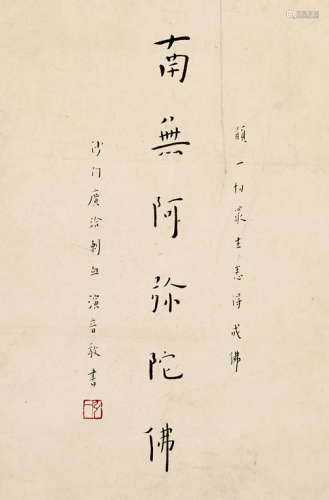 願一切眾生悉得成佛
南無阿弥陀佛
沙门廣洽刺血 演音敬書